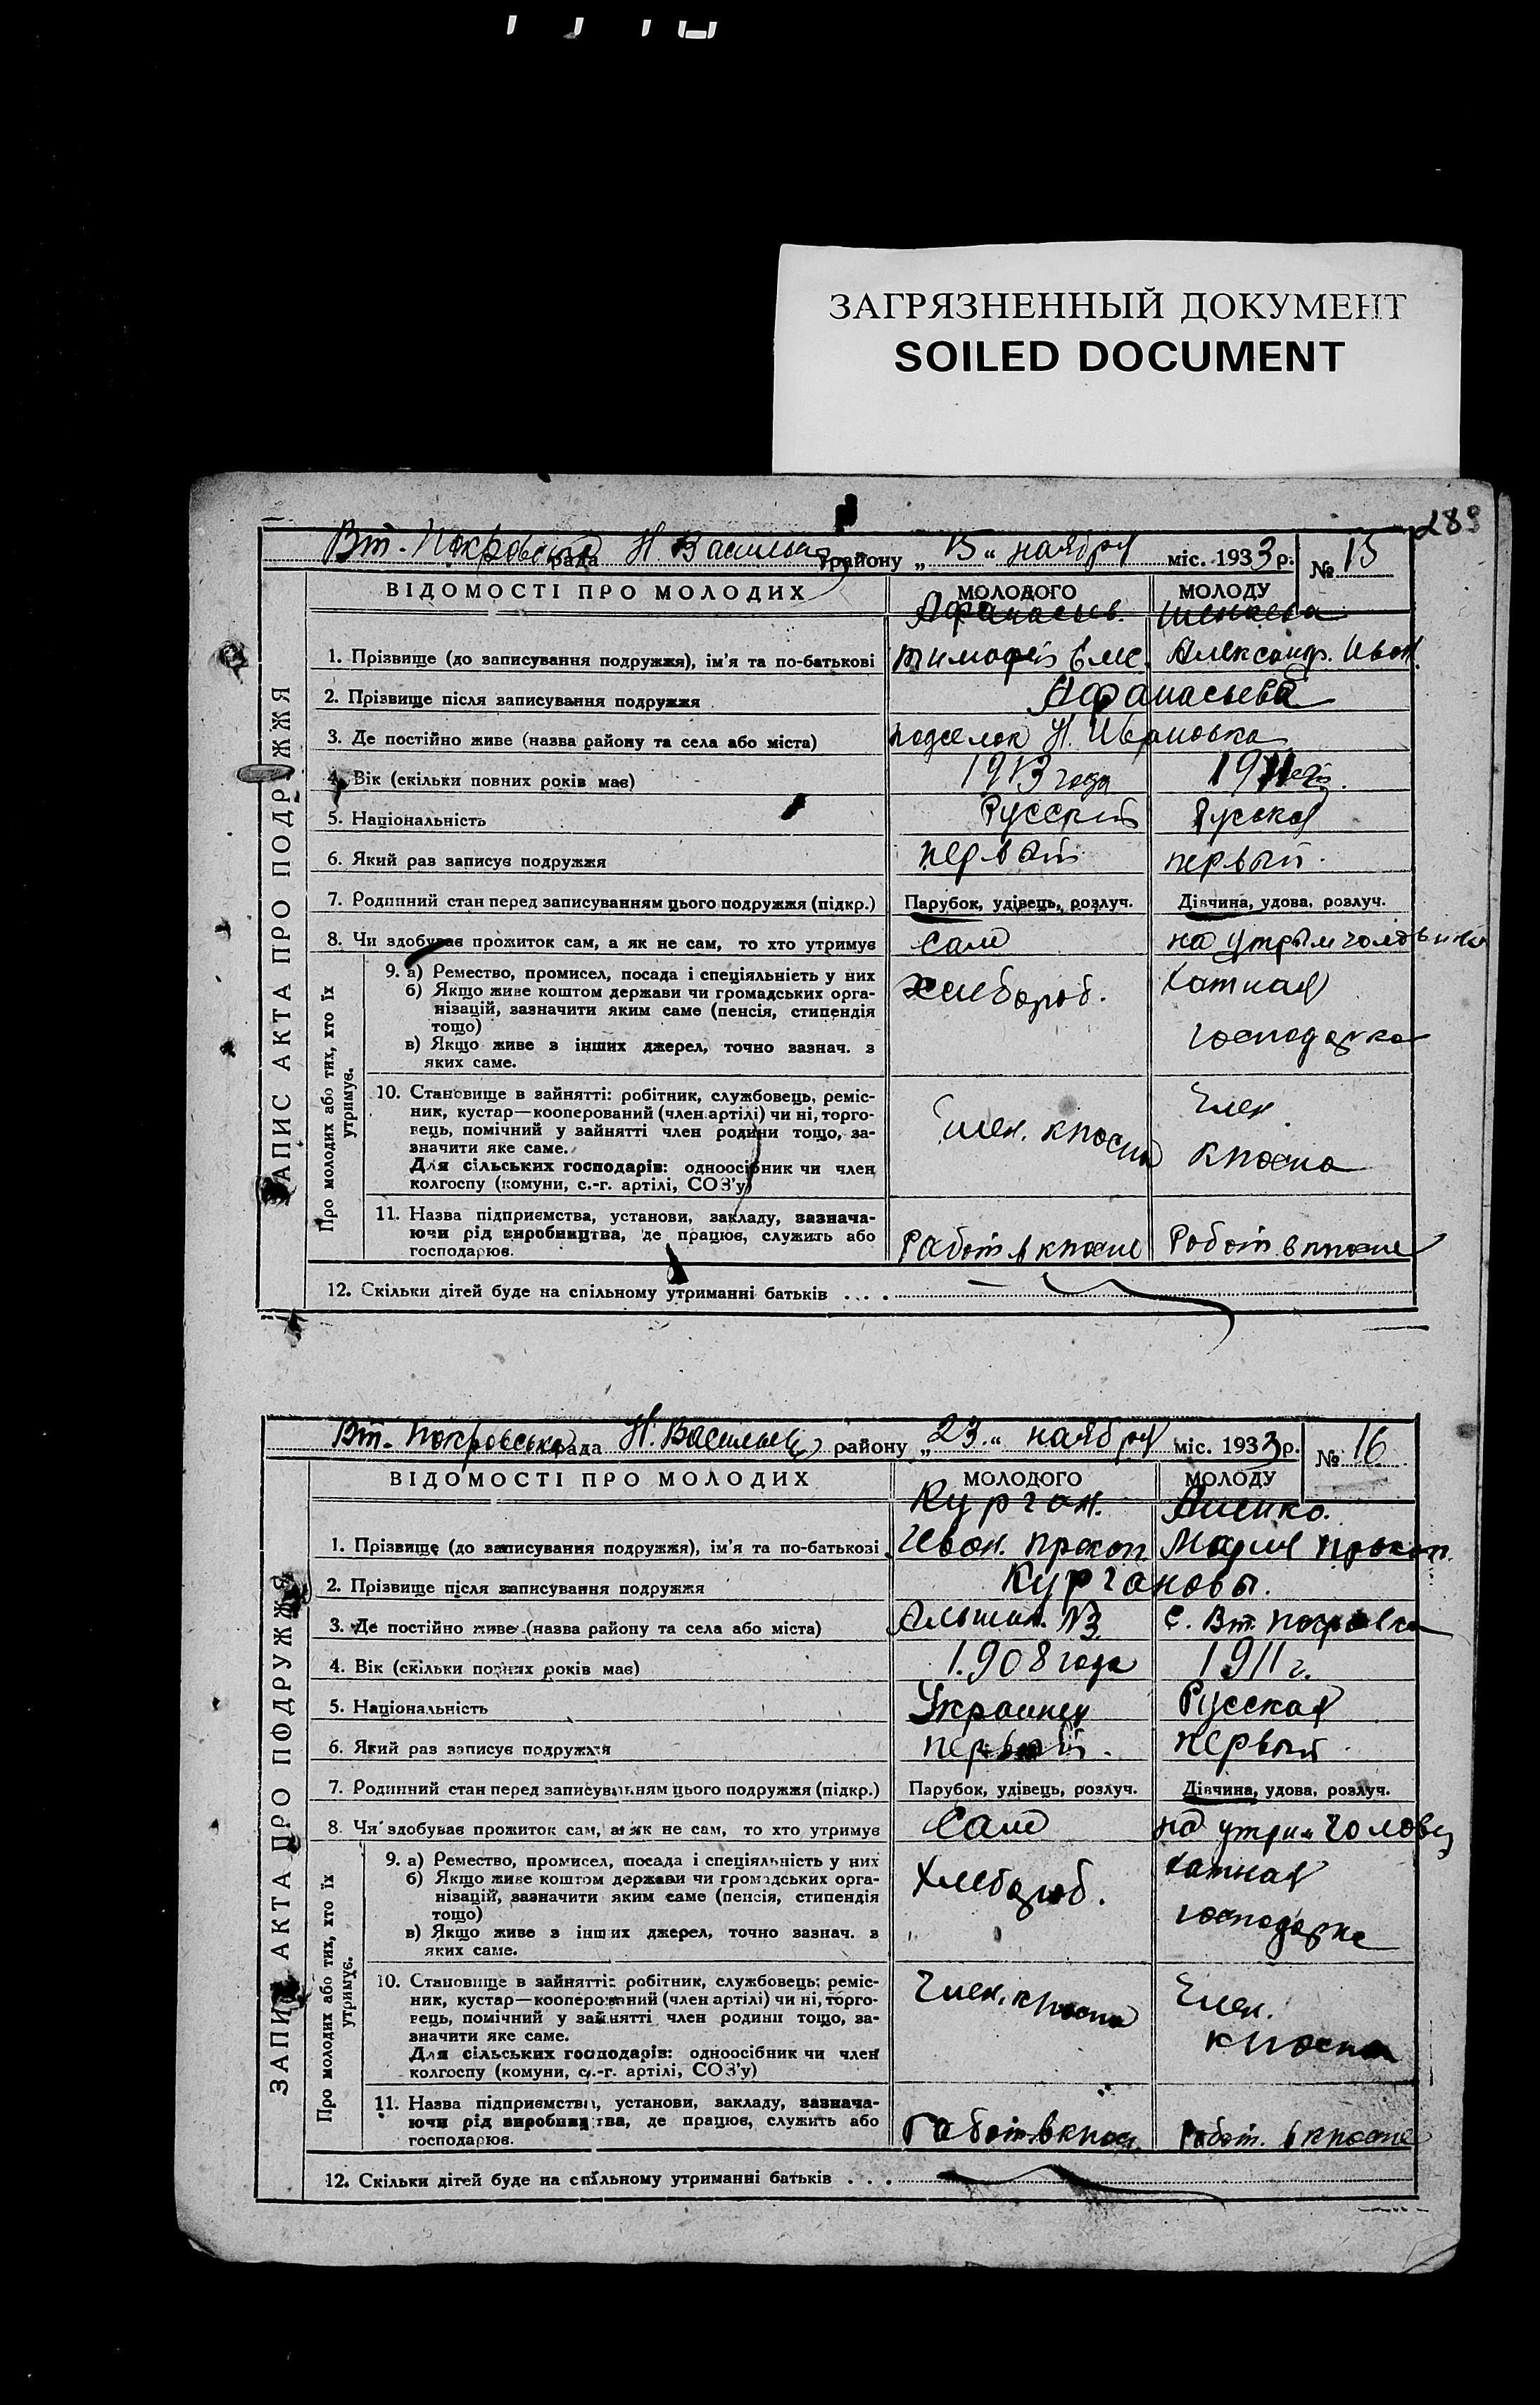 ЗАГРЯЗНЕННЫЙ ДОКУМЕНТ
SOILED DOCUMENT
289
Вт. Покровська рада Н. Васильев району „15“ ноября міс. 1933 р. № 15
ВІДОМОСТІ ПРО МОЛОДИХ МОЛОДОГО МОЛОДУ
Афанасьев.
1. Прізвище (до записування подружжя), ім'я та по-батькові Тимофей Александр. Иван.
2. Прізвище після записування подружжя Афанасьева
3. Де постійно живе (назва району та села або міста) поселок Н. Ивановка
4. Вік (скільки повних років має) 1913 года 1911
5. Національність Русский Русская
6. Який раз записує подружжя первый первый.
7. Родинний стан перед записуванням цього подружжя (підкр.) Парубок, удівець, розлуч. Дівчина, удова, розлуч.
8. Чи здобуває прожиток сам, а як не сам, то хто утримує сам на утрым чоловика
ЗАПИС АКТА ПРО ПОДРУЖЖЯ
Про молодих або тих, хто їх утримує.
9. а) Ремество, промисел, посада і спеціяльність у них Хлебороб. Хатная
б) Якщо живе коштом держави чи громадських орга-
нізацій, зазначити яким саме (пенсія, стипендія господарка
тощо)
в) Якщо живе з інших джерел, точно зазнач. з
яких саме.
10. Становище в зайнятті: робітник, службовець, реміс- Член
ник, кустар—кооперований (член артілі) чи ні, торго- Член.
вець, помічний у зайнятті член родини тощо, за-
значити яке саме.
Для сільських господарів: одноосібник чи член
колгоспу (комуни, с.-г. артілі, СОЗ'у)
11. Назва підприємства, установи, закладу, зазнача-
ючи рід виробництва, де працює, служить або Работ. в Работ. в
господарює.
12. Скільки дітей буде на спільному утриманні батьків . . .
Вт. Покровська рада Н. Васильев району „23“ ноября міс. 1933 р. № 16
ВІДОМОСТІ ПРО МОЛОДИХ МОЛОДОГО МОЛОДУ
Курган.
1. Прізвище (до записування подружжя), ім'я та по-батькові Иван. Прокоп. Мария Прокоп.
2. Прізвище після записування подружжя Кургановы.
3. Де постійно живе (назва району та села або міста) №3. С. Вт. Покровка
4. Вік (скільки повних років має) 1908 года 1911 г.
5. Національність Украинец Русская
6. Який раз записує подружжя первый. первый.
7. Родинний стан перед записуванням цього подружжя (підкр.) Парубок, удівець, розлуч. Дівчина, удова, розлуч.
8. Чи здобуває прожиток сам, а як не сам, то хто утримує Сам на утрим чоловец
ЗАПИС АКТА ПРО ПОДРУЖЖЯ
Про молодих або тих, хто їх утримує.
9. а) Ремество, промисел, посада і спеціяльність у них Хатная
б) Якщо живе коштом держави чи громадських орга- Хлебороб.
нізацій, зазначити яким саме (пенсія, стипендія
тощо) господарка
в) Якщо живе з інших джерел, точно зазнач. з
яких саме.
10. Становище в зайнятті: робітник, службовець, реміс- Член. Член.
ник, кустар—кооперований (член артілі) чи ні, торго-
вець, помічний у зайнятті член родини тощо, за-
значити яке саме.
Для сільських господарів: одноосібник чи член
колгоспу (комуни, с.-г. артілі, СОЗ'у)
11. Назва підприємства, установи, закладу, зазнача-
ючи рід виробництва, де працює, служить або Работ. в Работ. в
господарює.
12. Скільки дітей буде на спільному утриманні батьків . . .